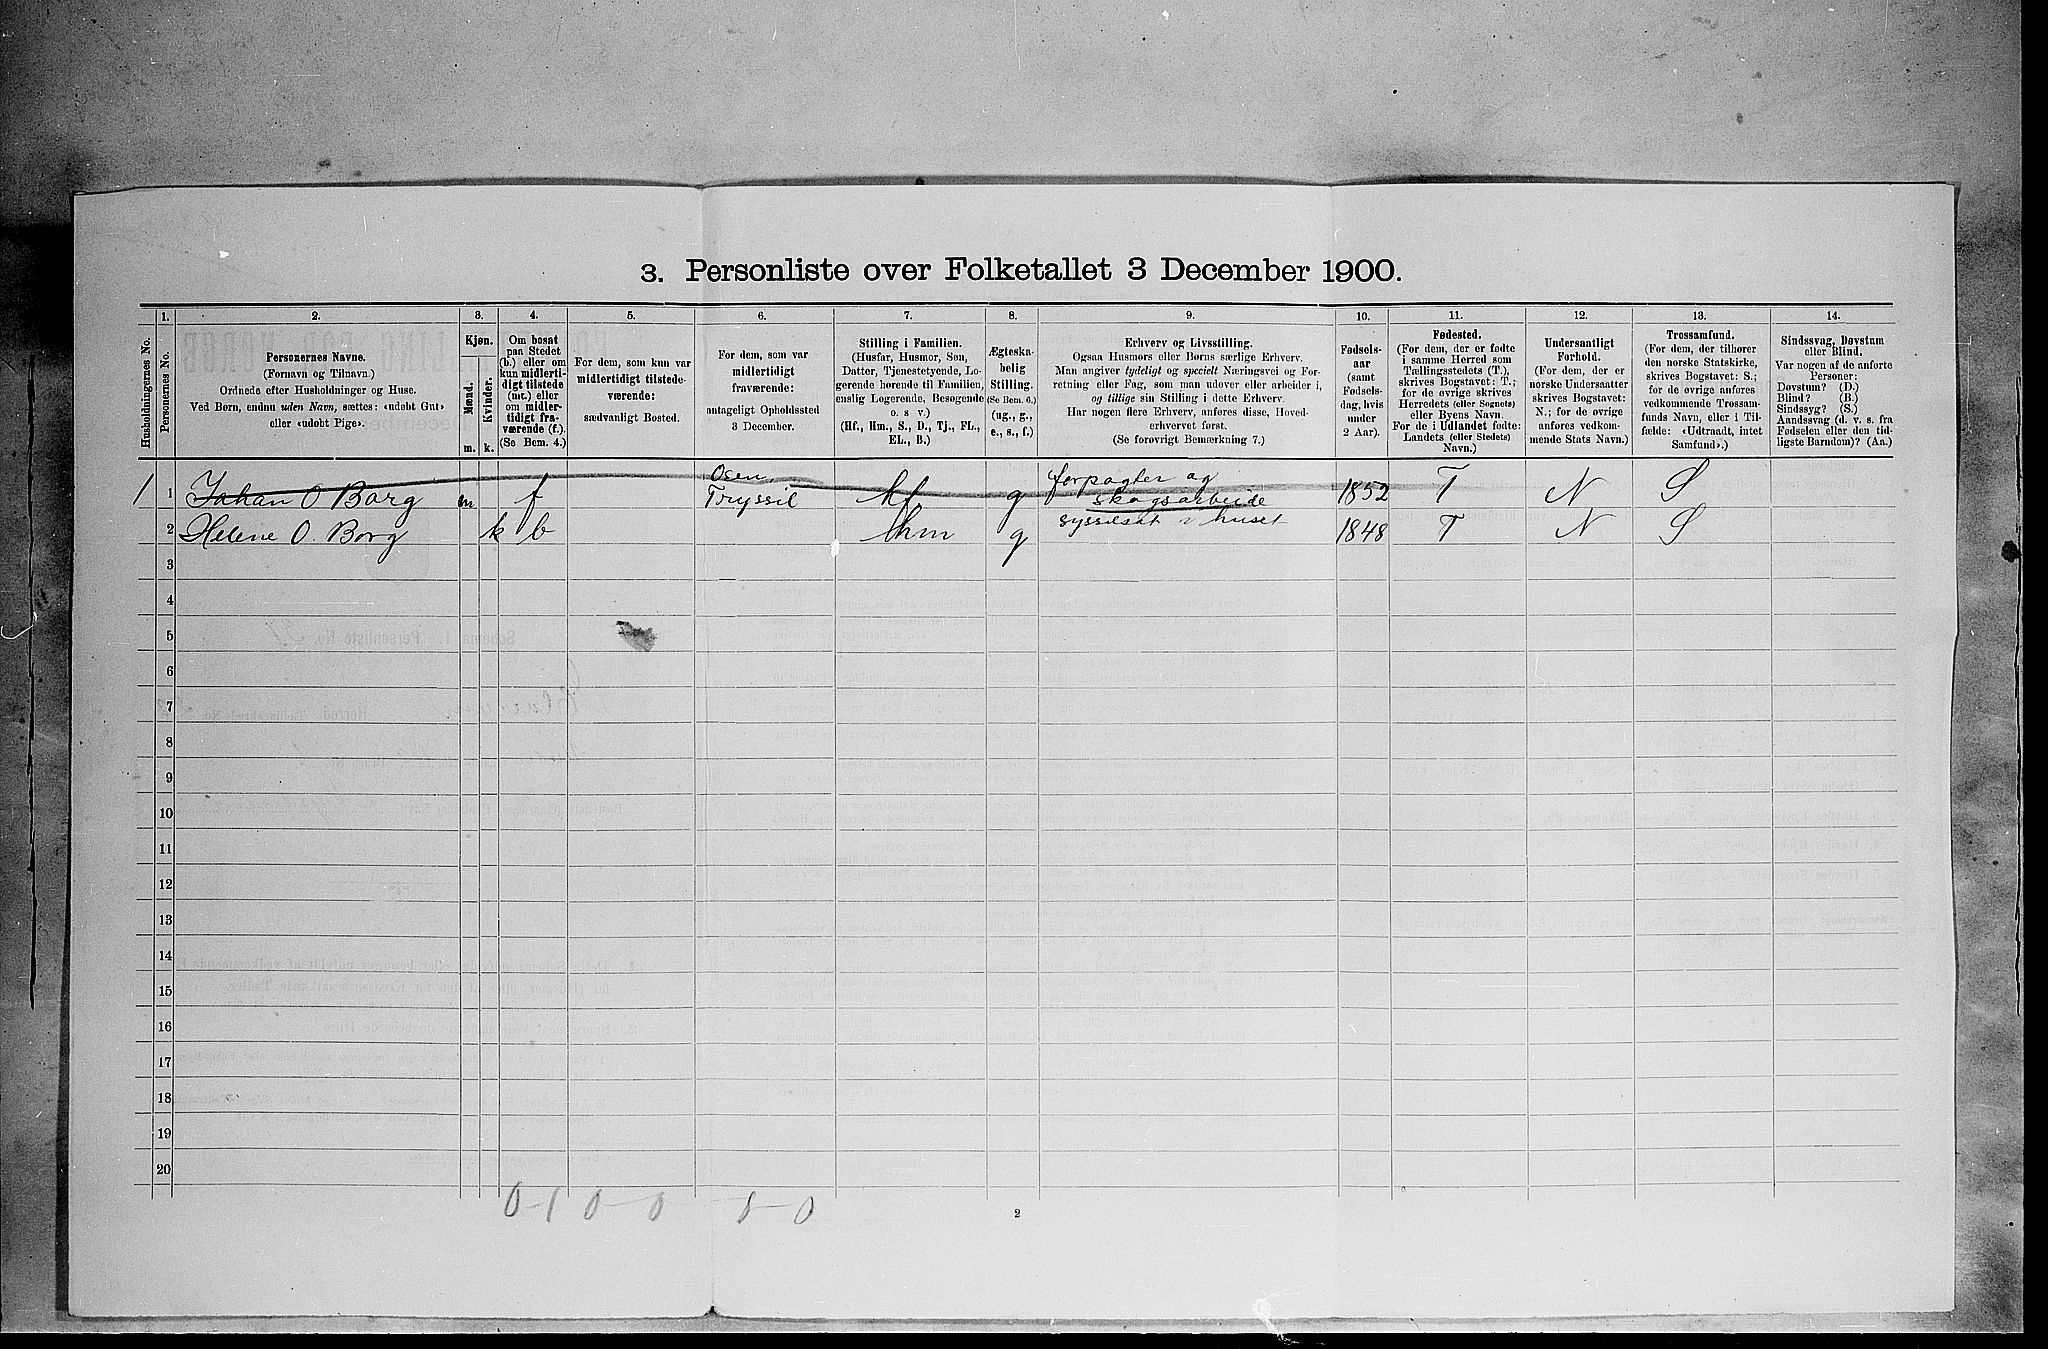 3. Personliste over Folketallet 3 December 1900.
Husholdningernes No.
1.
Personernes No.
2.
Personernes Navne.
(Fornavn og Tilnavn.)
Ordnede efter Husholdninger og Huse.
Ved Børn, endnu uden Navn, sættes: «udøbt Gut»
eller «udøbt Pige».
3.
Kjøn.
Mænd.
Kvinder.
m. k.
4.
Om bosat
paa Stedet
(b.) eller om
kun midlerti-
digt tilstede
(mt.) eller
om midler-
tidigt fra-
værende (f.).
(Se Bem. 4.)
5.
For dem, som kun var
midlertidigt tilstede-
værende:
sædvanligt Bosted.
6.
For dem, som var
midlertidigt
fraværende:
antageligt Opholdssted
3 December.
7.
Stilling i Familien.
(Husfar, Husmor, Søn,
Datter, Tjenestetyende, Lo-
gerende hørende til Familien,
enslig Logerende, Besøgende
o. s. v.)
(Hf., Hm., S., D., Tj., FL.,
EL., B.)
8.
Ægteska-
belig
Stilling.
(Se Bem. 6.)
(ug., g.,
e., s., f.)
9.
Erhverv og Livsstilling.
Ogsaa Husmors eller Børns særlige Erhverv.
Man angiver tydeligt og specielt Næringsvei og For-
retning eller Fag, som man udøver eller arbeider i,
og tillige sin Stilling i dette Erhverv.
Har nogen flere Erhverv, anføres disse, Hoved-
erhvervet først.
(Se forøvrigt Bemærkning 7.)
10.
Fødsels-
aar
(samt
Fødsels-
dag, hvis
under
2 Aar).
11.
Fødested.
(For dem, der er fødte
i samme Herred som
Tællingsstedets (T.),
skrives Bogstavet: T.;
for de øvrige skrives
Herredets (eller Sognets)
eller Byens Navn.
For de i Udlandet fødte:
Landets (eller Stedets)
Navn.)
12.
Undersaatligt
Forhold.
(For dem, der er
norske Undersaatter
skrives Bogstavet:
N.; for de øvrige
anføres vedkom-
mende Stats Navn.)
13.
Trossamfund.
(For dem, der tilhører
den norske Statskirke,
skrives Bogstavet: S.;
for de øvrige anføres
vedkommende Trossam-
funds Navn, eller i Til-
fælde: «Udtraadt, intet
Samfund».)
14.
Sindssvag, Døvstum
eller Blind.
Var nogen af de anførte
Personer:
Døvstum? (D.)
Blind? (B.)
Sindssyg? (S.)
Aandssvag (d. v. s. fra
Fødselen eller den tid-
ligste Barndom)? (Aa.)
1 1 Johan O Borg m f Osen, Tryssil Hf g forpagter og skogsarbeide 1852 T N S
2 Helene O. Borg k b hm g sysselsat i huset 1848 T N S
3
4
5
6
7
8
9
10
11
12
13
14
15
16
17
18
19
20
0-1 0-0
2